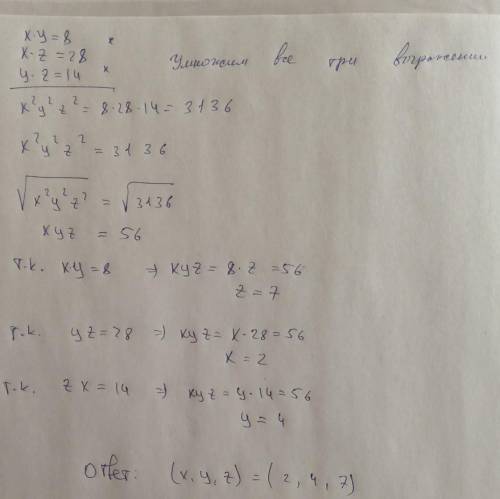 x·y=8 ×
x·z=28 Умножим все три выражения
y·z=14 ×
x²y²z²=8·28·14=3136
x²y²z²=3136
√x²y²z² = √3136
xyz = 56
т.к. xy=8 ⇒ xyz=8·z=56
z=7
т.к. yz=28 ⇒ xyz=x·28=56
x=2
т.к. zx=14 ⇒ xyz=y·14=56
y=4
Ответ: (x,y,z)=(2,4,7)